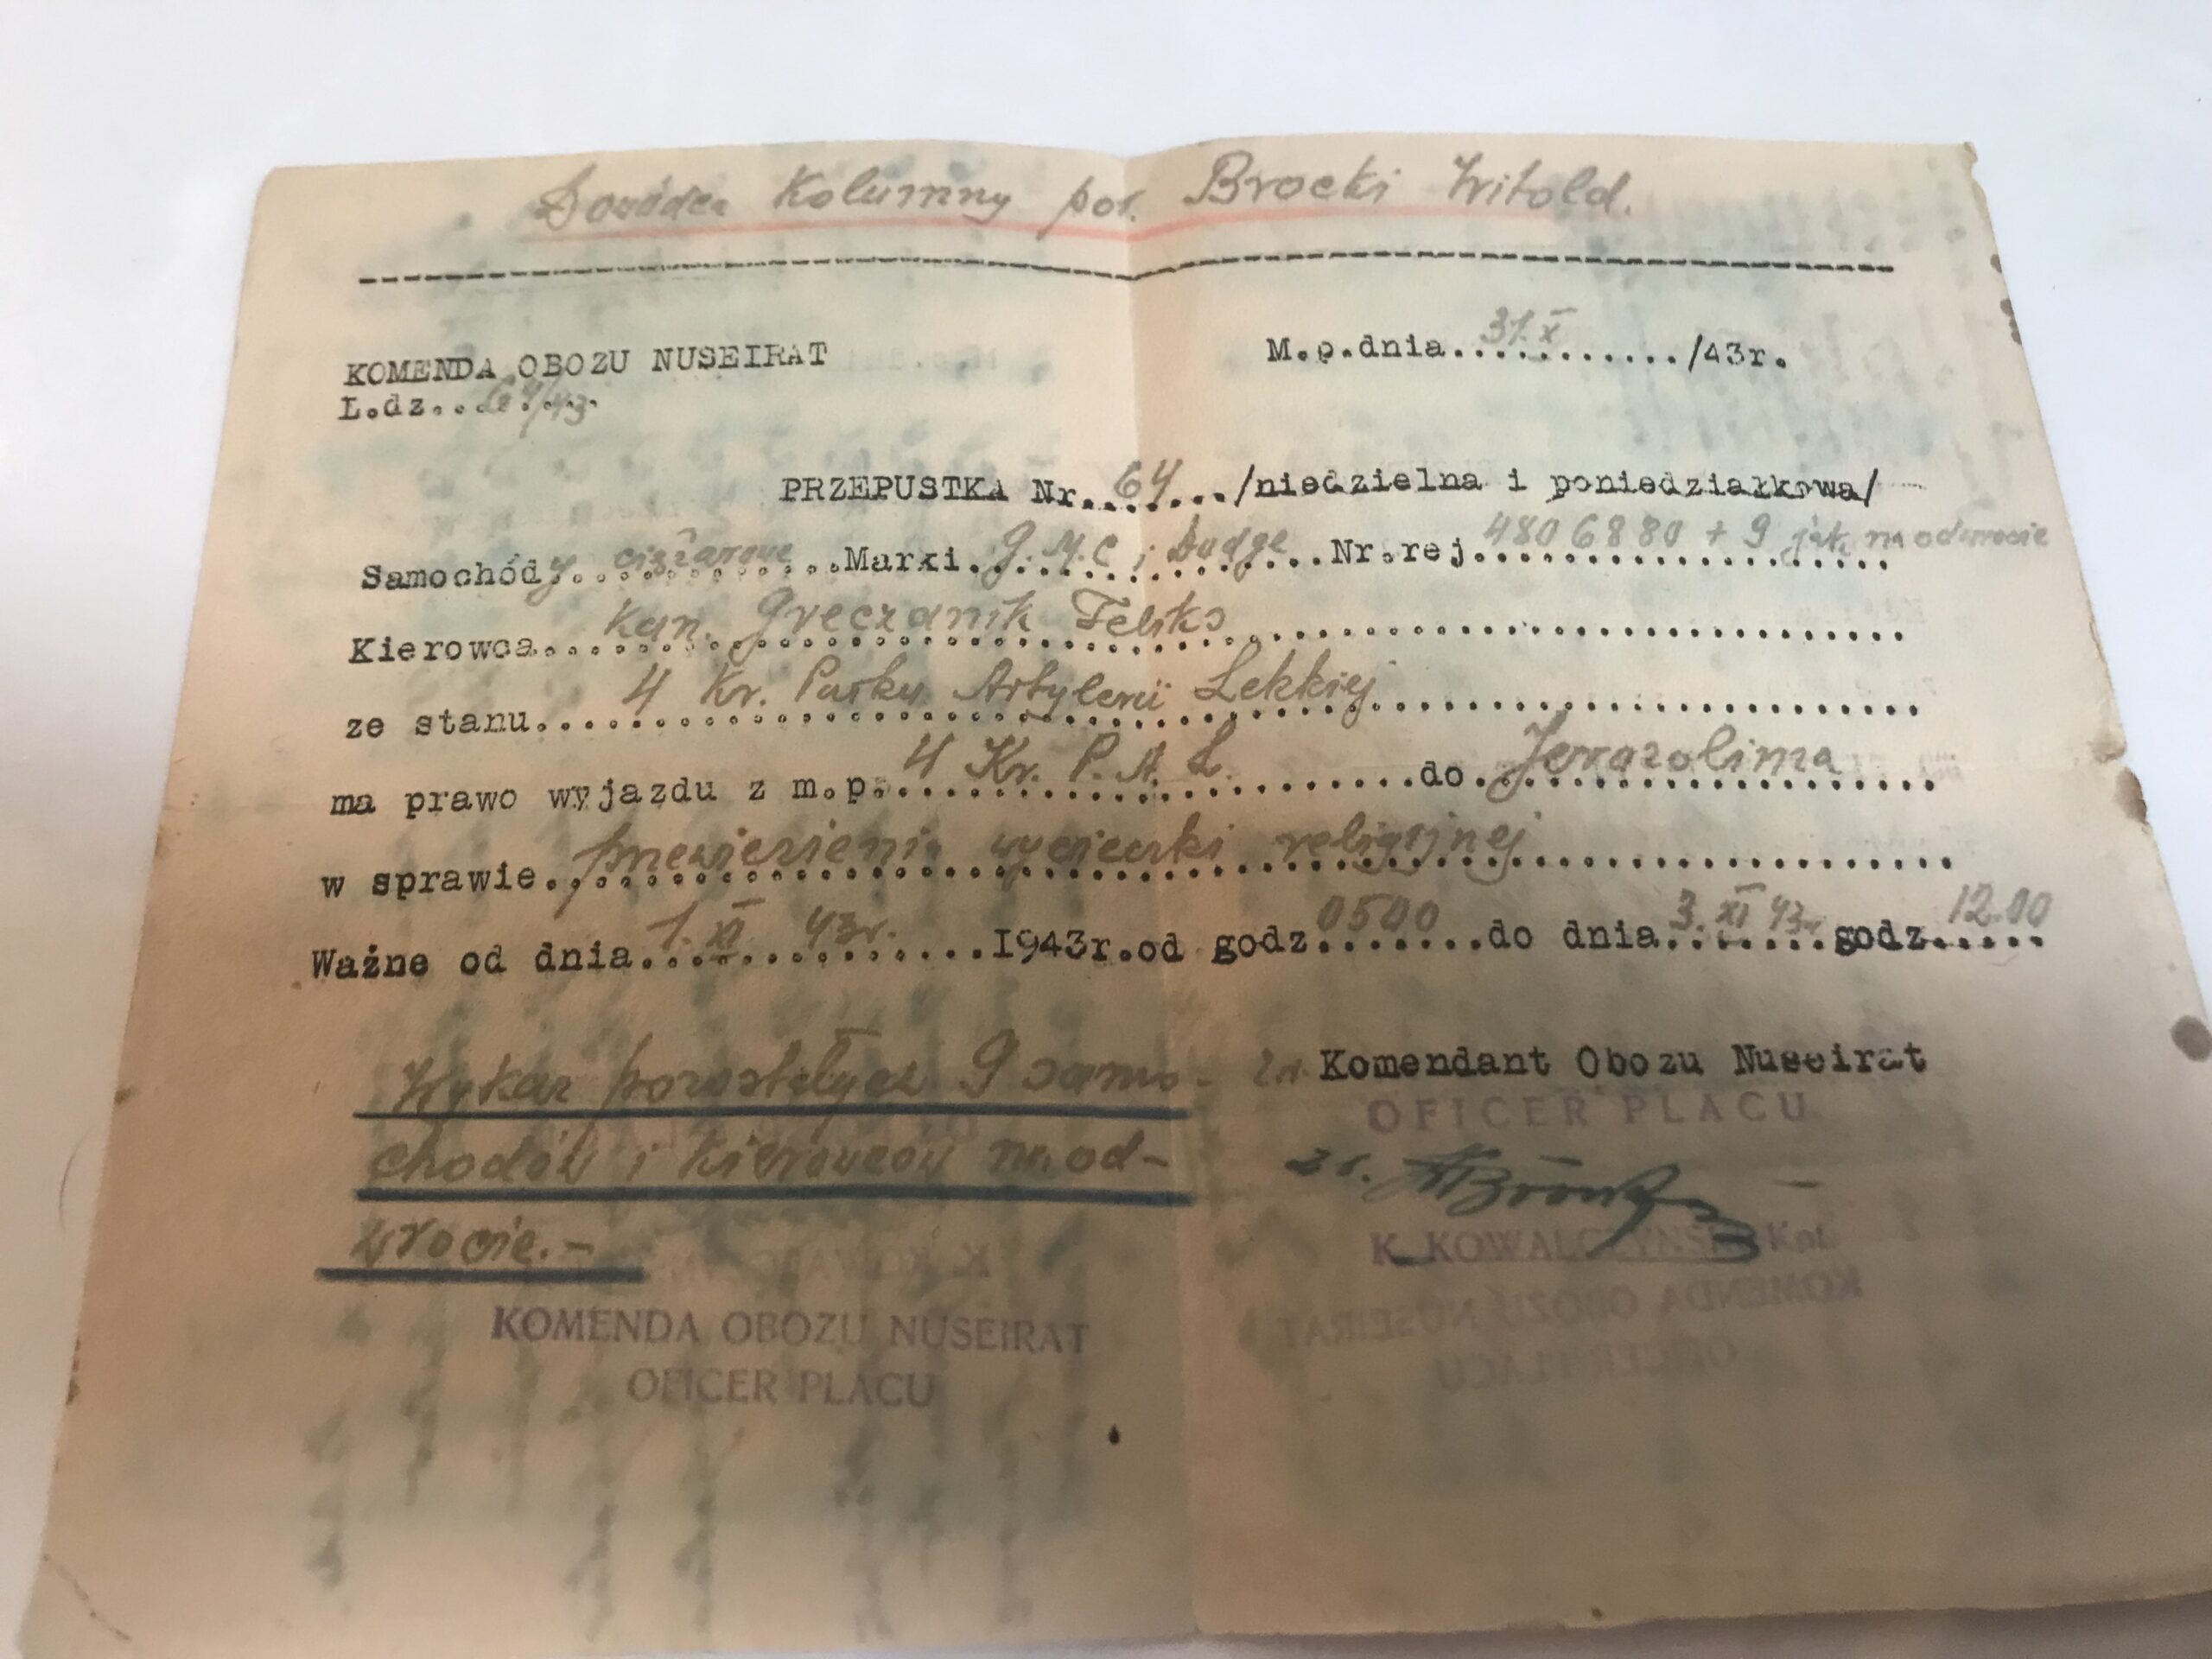 Dowódca Kolumny por. Brocki Witold.
KOMENDA OBOZU NUSEIRAT
M.p.dnia...31.X.../43r.
L.dz...64/43
PRZEPUSTKA Nr..64.../niedzielna i poniedziałkowa/
Samochódy..ciężarowe..Marki.G.M.C i Dodge..Nr.rej.4806880 + 9 jak na odwrocie
Kierowca...kan. Greczanik Feliks...
ze stanu...4 Kr. Parku Artylerii Lekkiej...
ma prawo wyjazdu z m.p...4 Kr. P. A. L....do.Jerozolima...
w sprawie.przewiezieni wycieczki religijnej...
Ważne od dnia...1.XI 43r....1943r.od godz.0500...do dnia.3.XI 43r.godz.12.00
Wykaz pozostałych 9 samo-
chodów i kierowców na od-
wrocie.-
Komendant Obozu Nuseirat
OFICER PLACU
K. KOWALCZYŃSKI Kpt.
KOMENDA OBOZU NUSEIRAT
OFICER PLACU